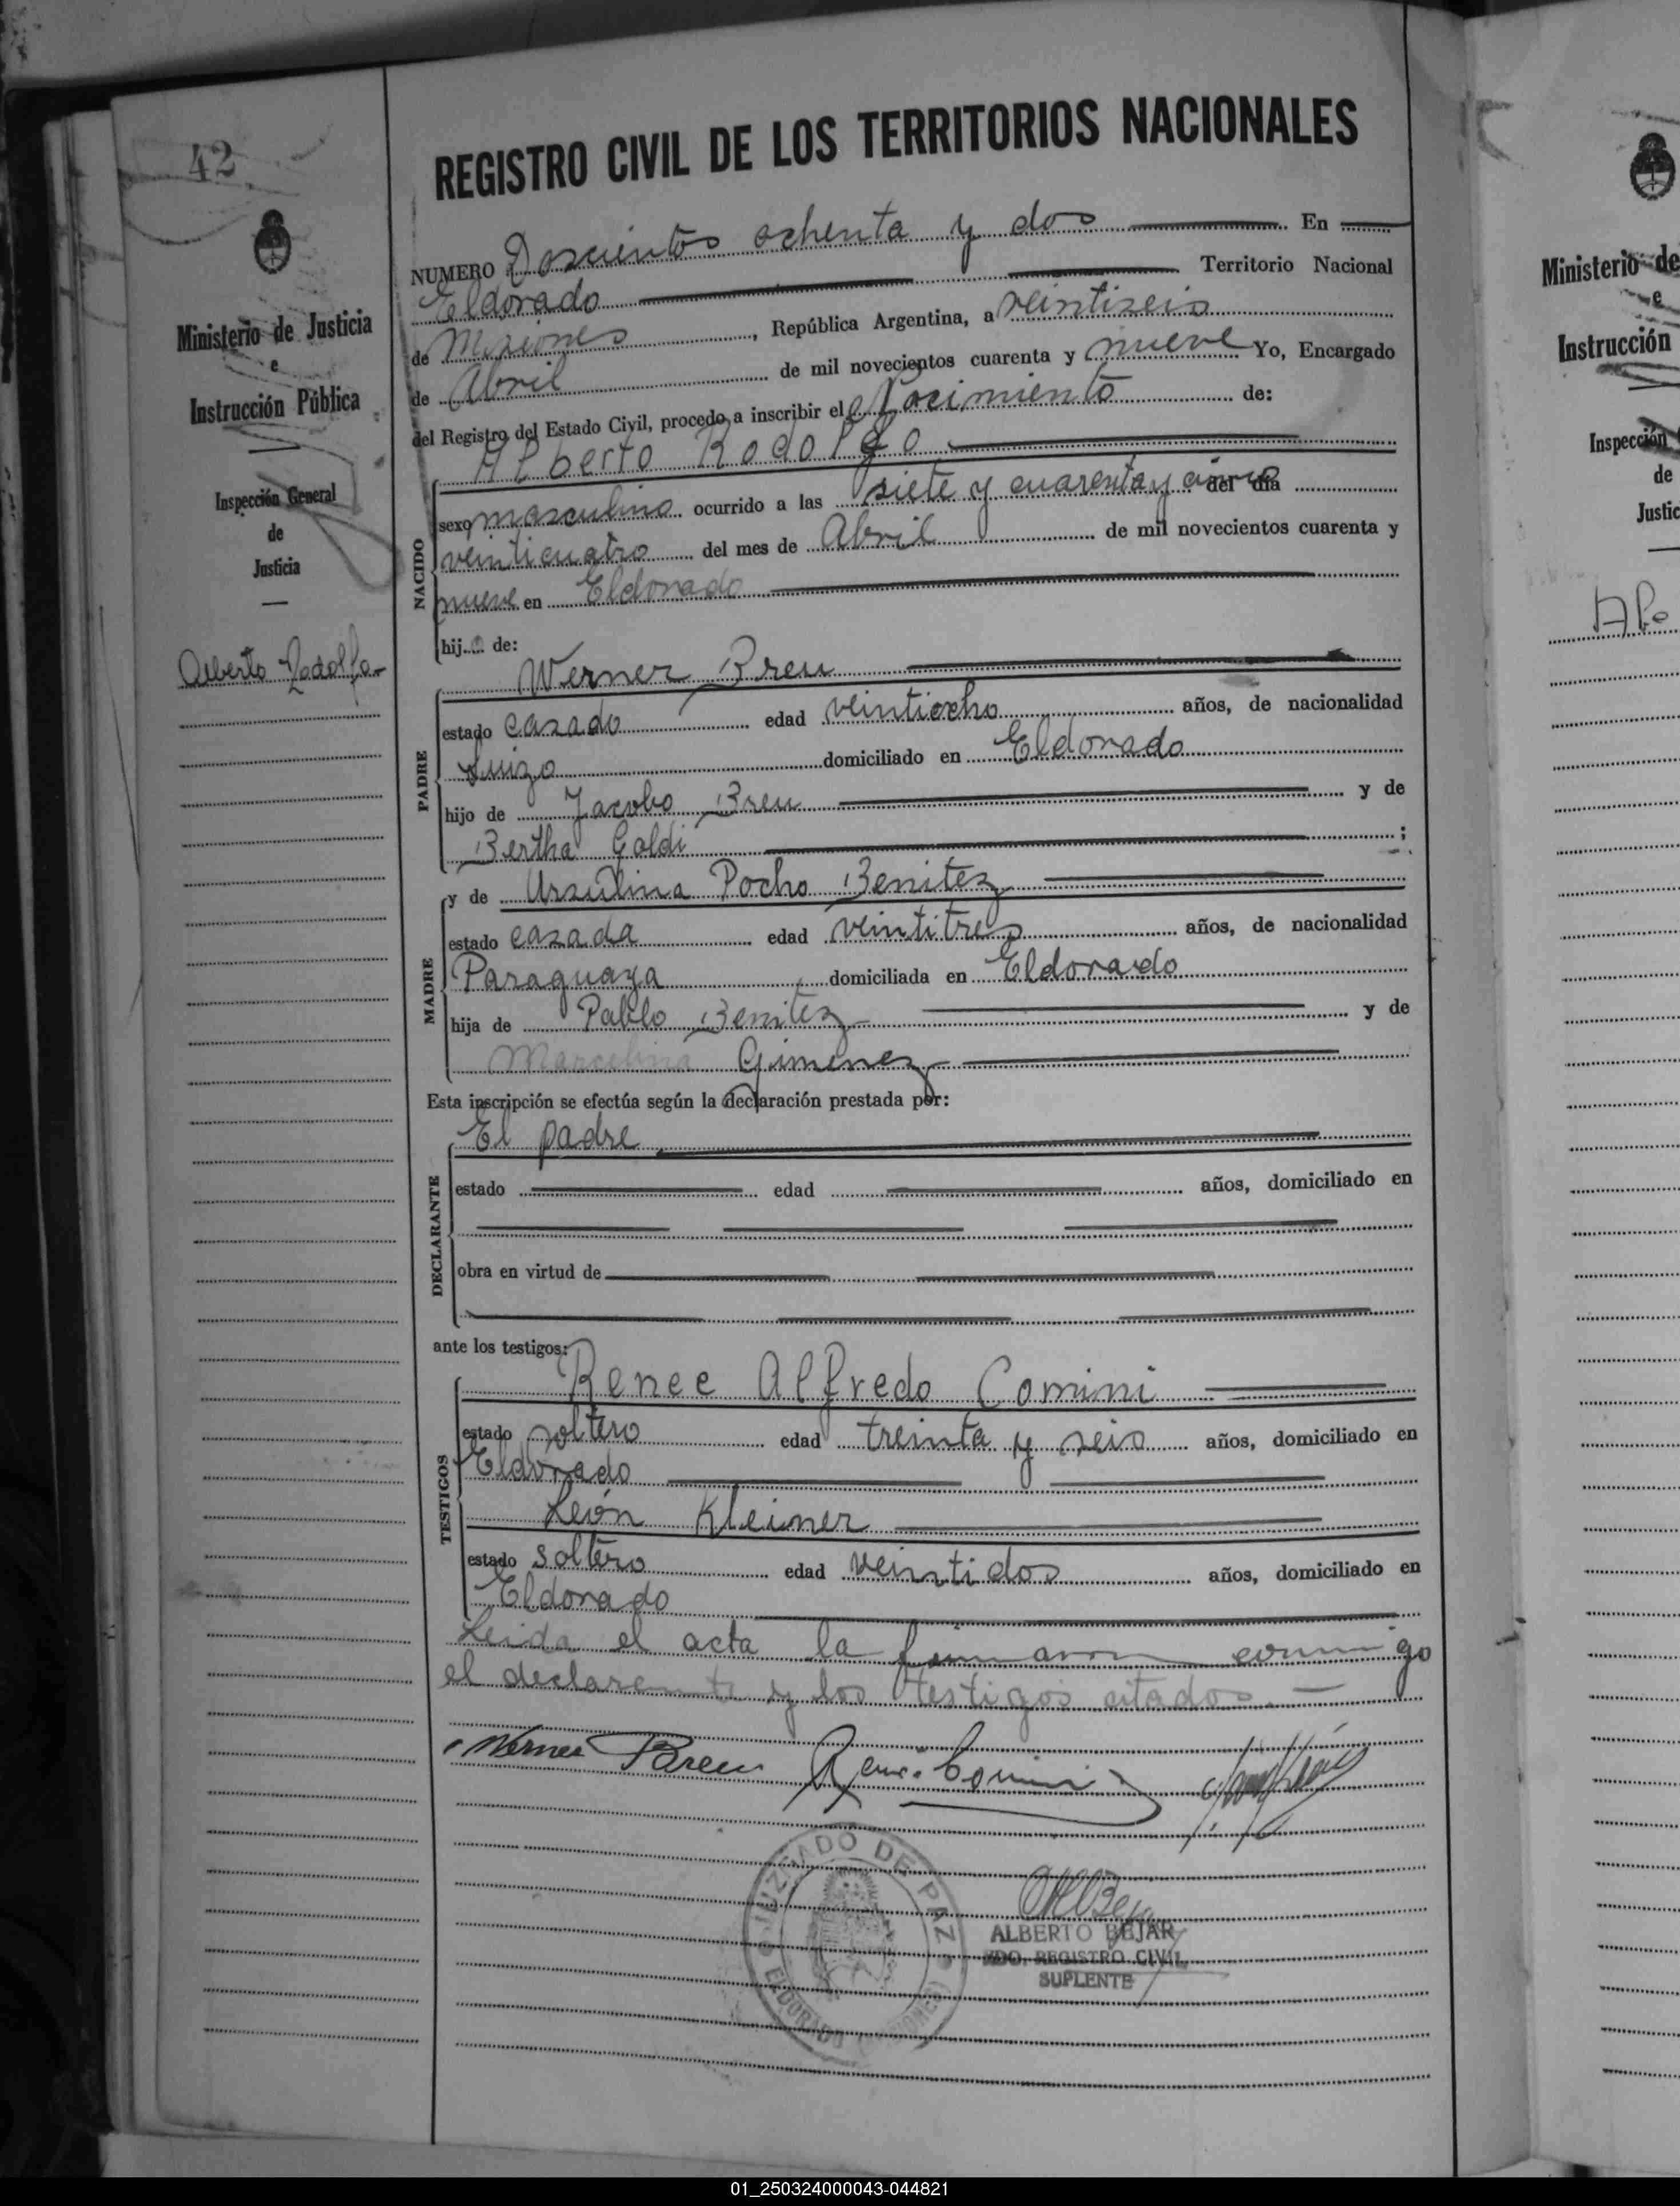 42
Ministerio de Justicia
e
Instrucción Pública
Inspección General
de
Justicia
Alberto Rodolfo
REGISTRO CIVIL DE LOS TERRITORIOS NACIONALES
NUMERO Doscientos ochenta y dos En
Eldorado Territorio Nacional
de Misiones, República Argentina, a veintiseis
de Abril de mil novecientos cuarenta y nueve Yo, Encargado
del Registro del Estado Civil, procedo a inscribir el Nacimiento de:
Alberto Rodolfo
NACIDO
sexo masculino ocurrido a las siete y cuarenta y cinco del día
veinticuatro del mes de Abril de mil novecientos cuarenta y
nueve en Eldorado
hijo de:
PADRE
Werner Breu
estado casado edad veintiocho años, de nacionalidad
Suizo domiciliado en Eldorado
hijo de Jacobo Breu y de
Bertha Goldi ;
MADRE
y de Ursulina Pocho Benitez
estado casada edad veintitres años, de nacionalidad
Paraguaya domiciliada en Eldorado
hija de Pablo Benitez y de
Marcelina Gimenez
Esta inscripción se efectúa según la declaración prestada por:
DECLARANTE
El padre
estado edad años, domiciliado en
obra en virtud de
ante los testigos:
TESTIGOS
Renee Alfredo Comini
estado soltero edad treinta y seis años, domiciliado en
Eldorado
León Kleiner
estado soltero edad veintidos años, domiciliado en
Eldorado
Leida el acta la firmaron conmigo
el declarante y los testigos citados.
Werner Breu
JUZGADO DE PAZ
ELDORADO (MISIONES)
ALBERTO BEJAR
EDO. REGISTRO CIVIL
SUPLENTE
Ministerio de
e
Instrucción
Inspección
de
Justic
01_250324000043-044821